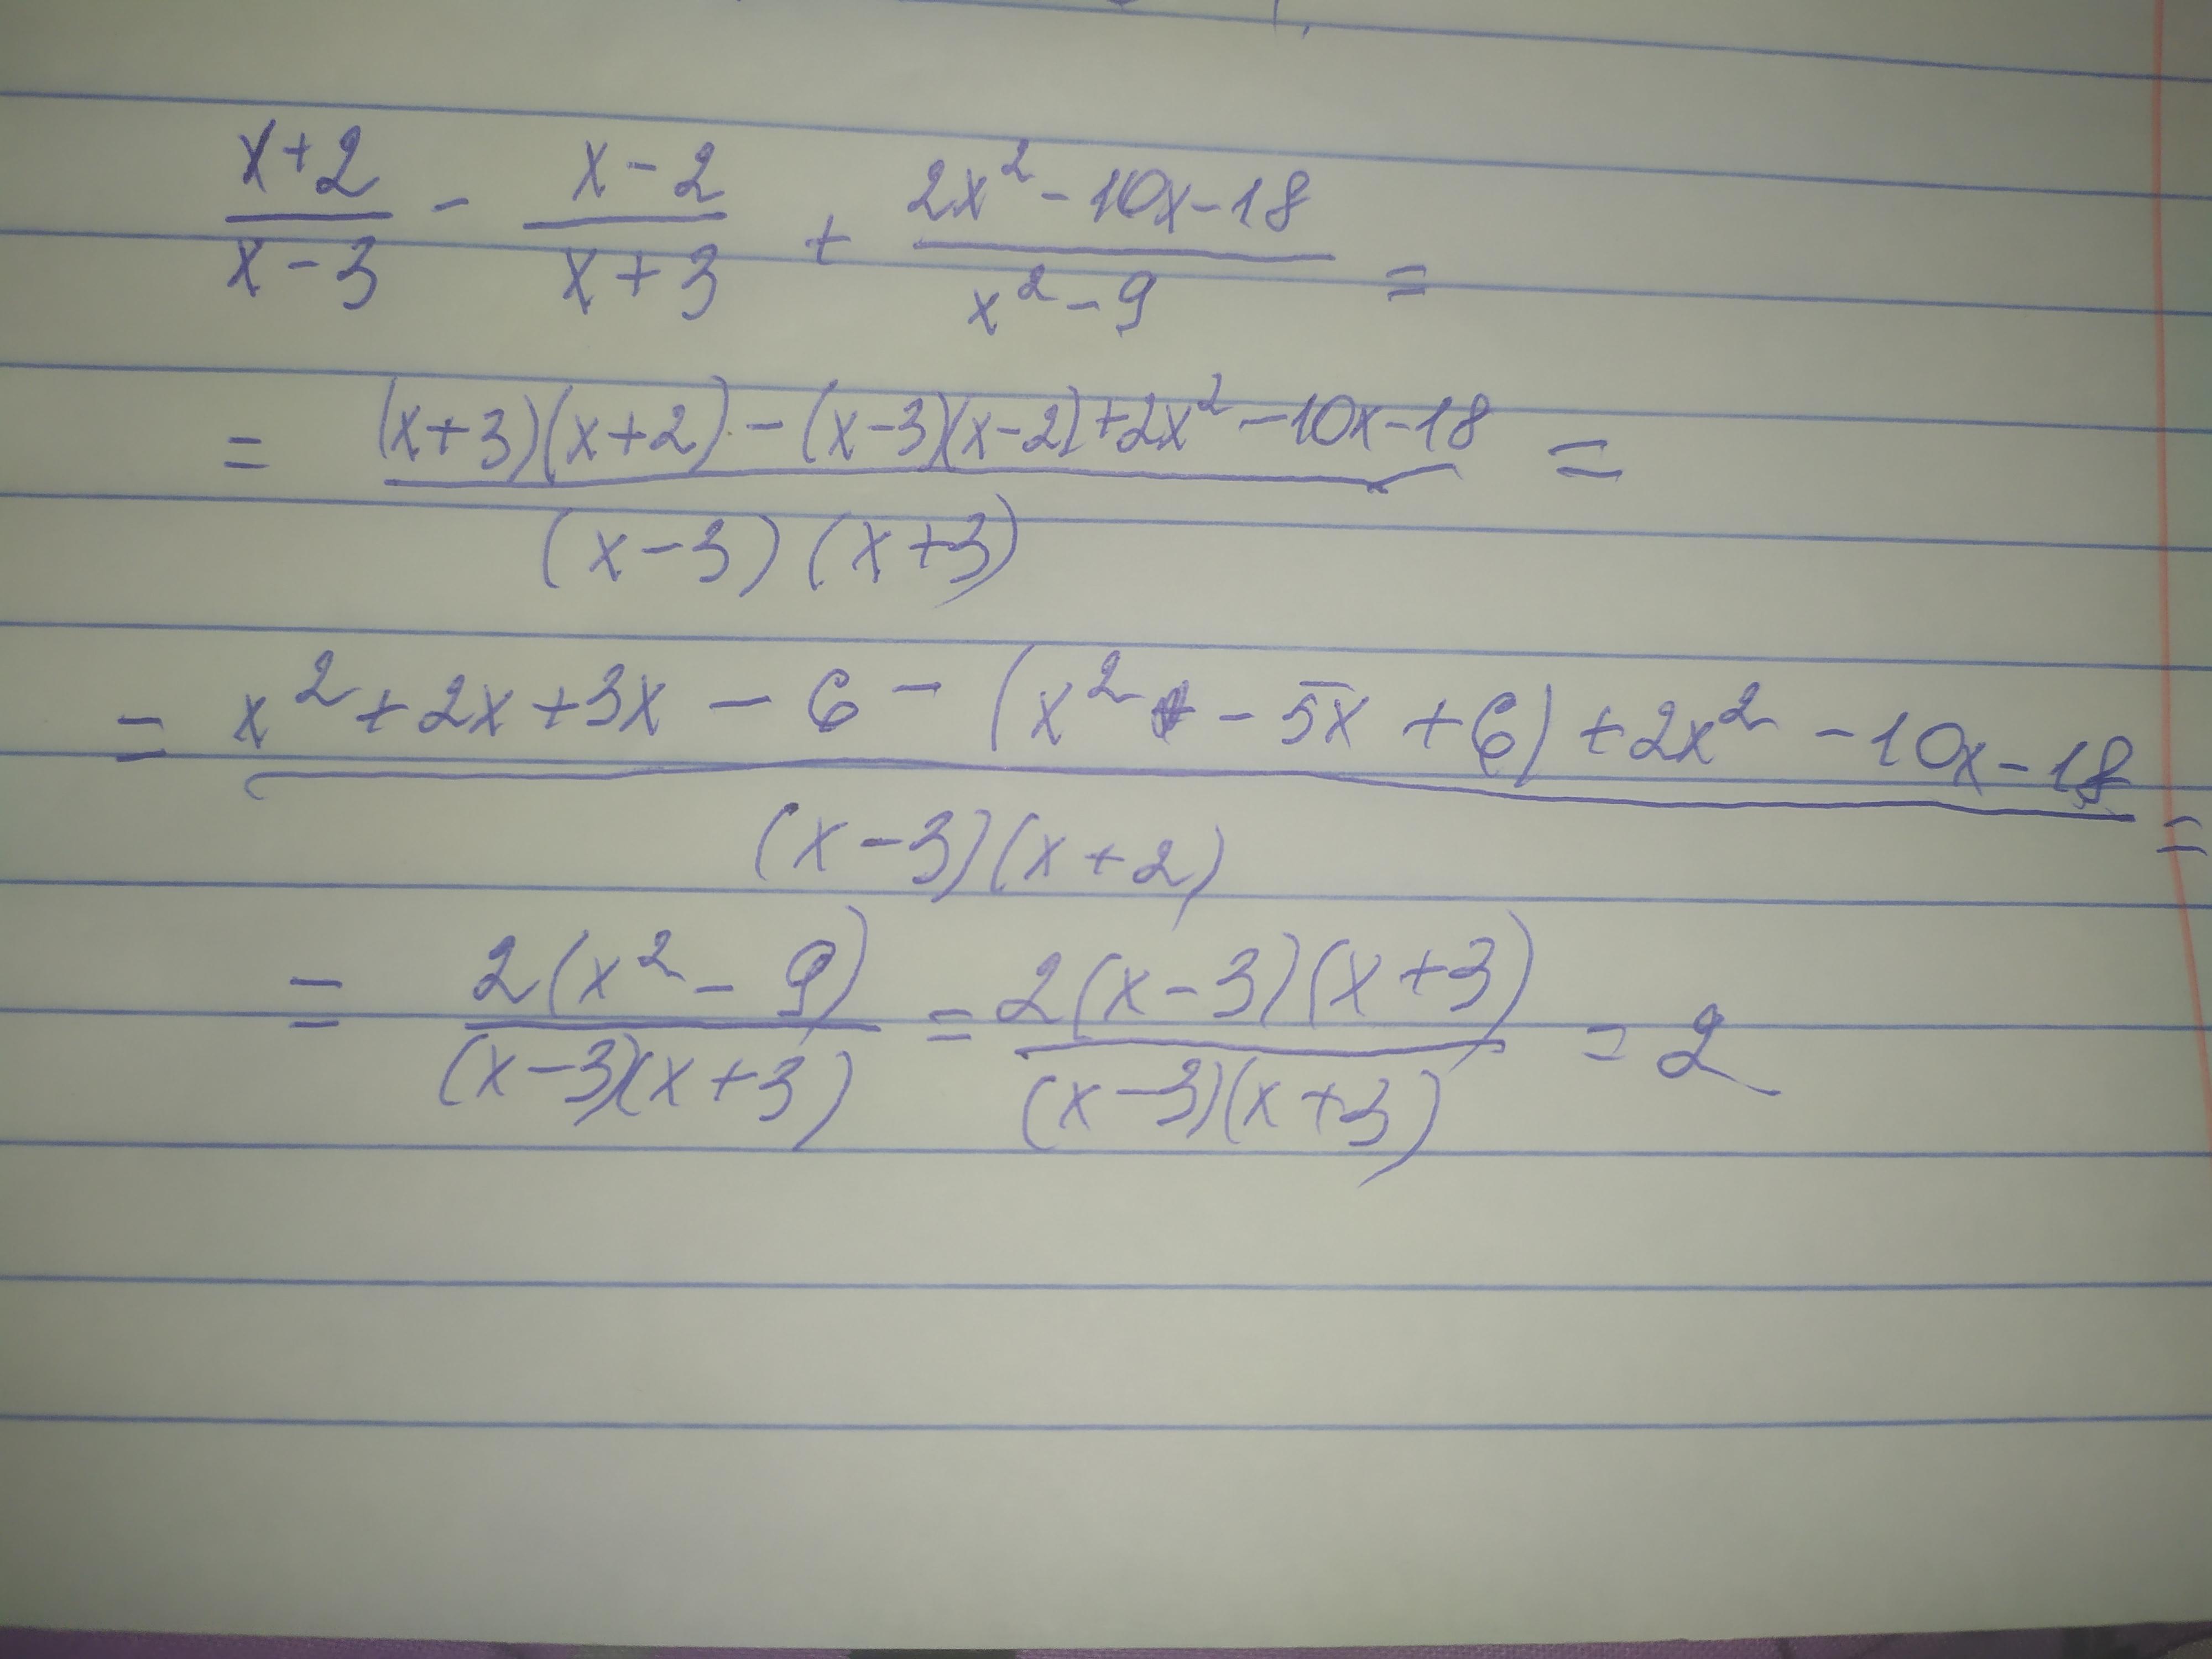 (x+2)/(x-3) - (x-2)/(x+3) + (2x²-10x-18)/(x²-9) =
= ((x+3)(x+2) - (x-3)(x-2)+2x²-10x-18)/((x-3)(x+3)) =
= (x²+2x+3x-6-(x²-5x+6)+2x²-10x-18)/((x-3)(x+2)) =
= (2(x²-9))/((x-3)(x+3)) = (2(x-3)(x+3))/((x-3)(x+3)) = 2